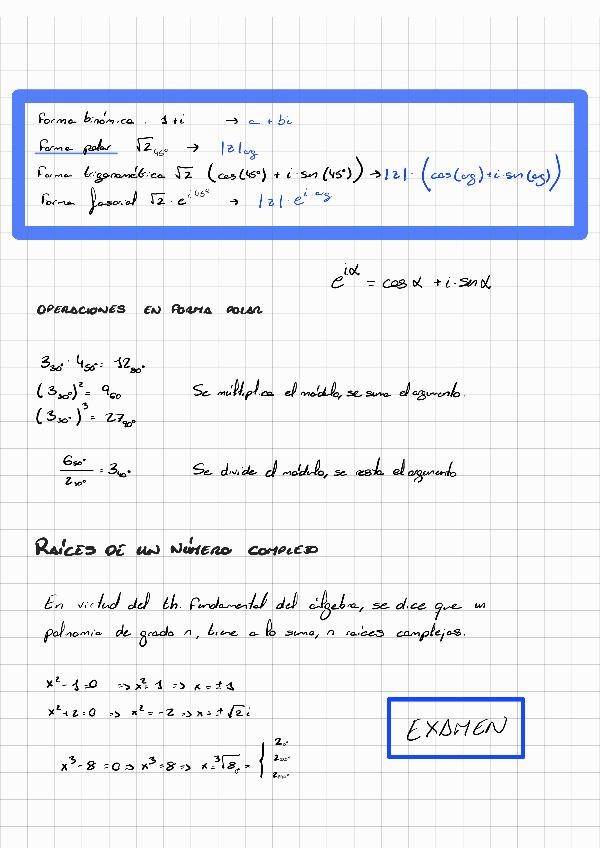 Forma binómica. 1+i → a + bi
Forma polar √2₄₅° → |z|ₐᵣg
Forma trigonométrica √2 (cos(45°) + i·sin(45°)) → |z|·(cos(arg)+i·sin(arg))
Forma fasorial √2·e^(i·45°) → |z|·e^(i·arg)
e^(iα) = cos α + i·sin α
OPERACIONES EN FORMA POLAR
3₃₀°·4₅₀° = 12₈₀°
(3₃₀°)² = 9₆₀ Se multiplica el módulo, se suma el argumento.
(3₃₀°)³ = 27₉₀°
6₅₀°/2₁₀° = 3₄₀° Se divide el módulo, se resta el argumento
RAÍCES DE UN NÚMERO COMPLEJO
En virtud del th. fundamental del álgebra, se dice que un
polinomio de grado n, tiene a lo sumo, n raíces complejas.
x²-1=0 ⇒ x²=1 ⇒ x=±1
x²+2=0 ⇒ x²=-2 ⇒ x=±√2i
EXAMEN
x³-8=0 ⇒ x³=8 ⇒ x=³√8₀ = { 2₀°
2₁₂₀°
2₂₄₀°